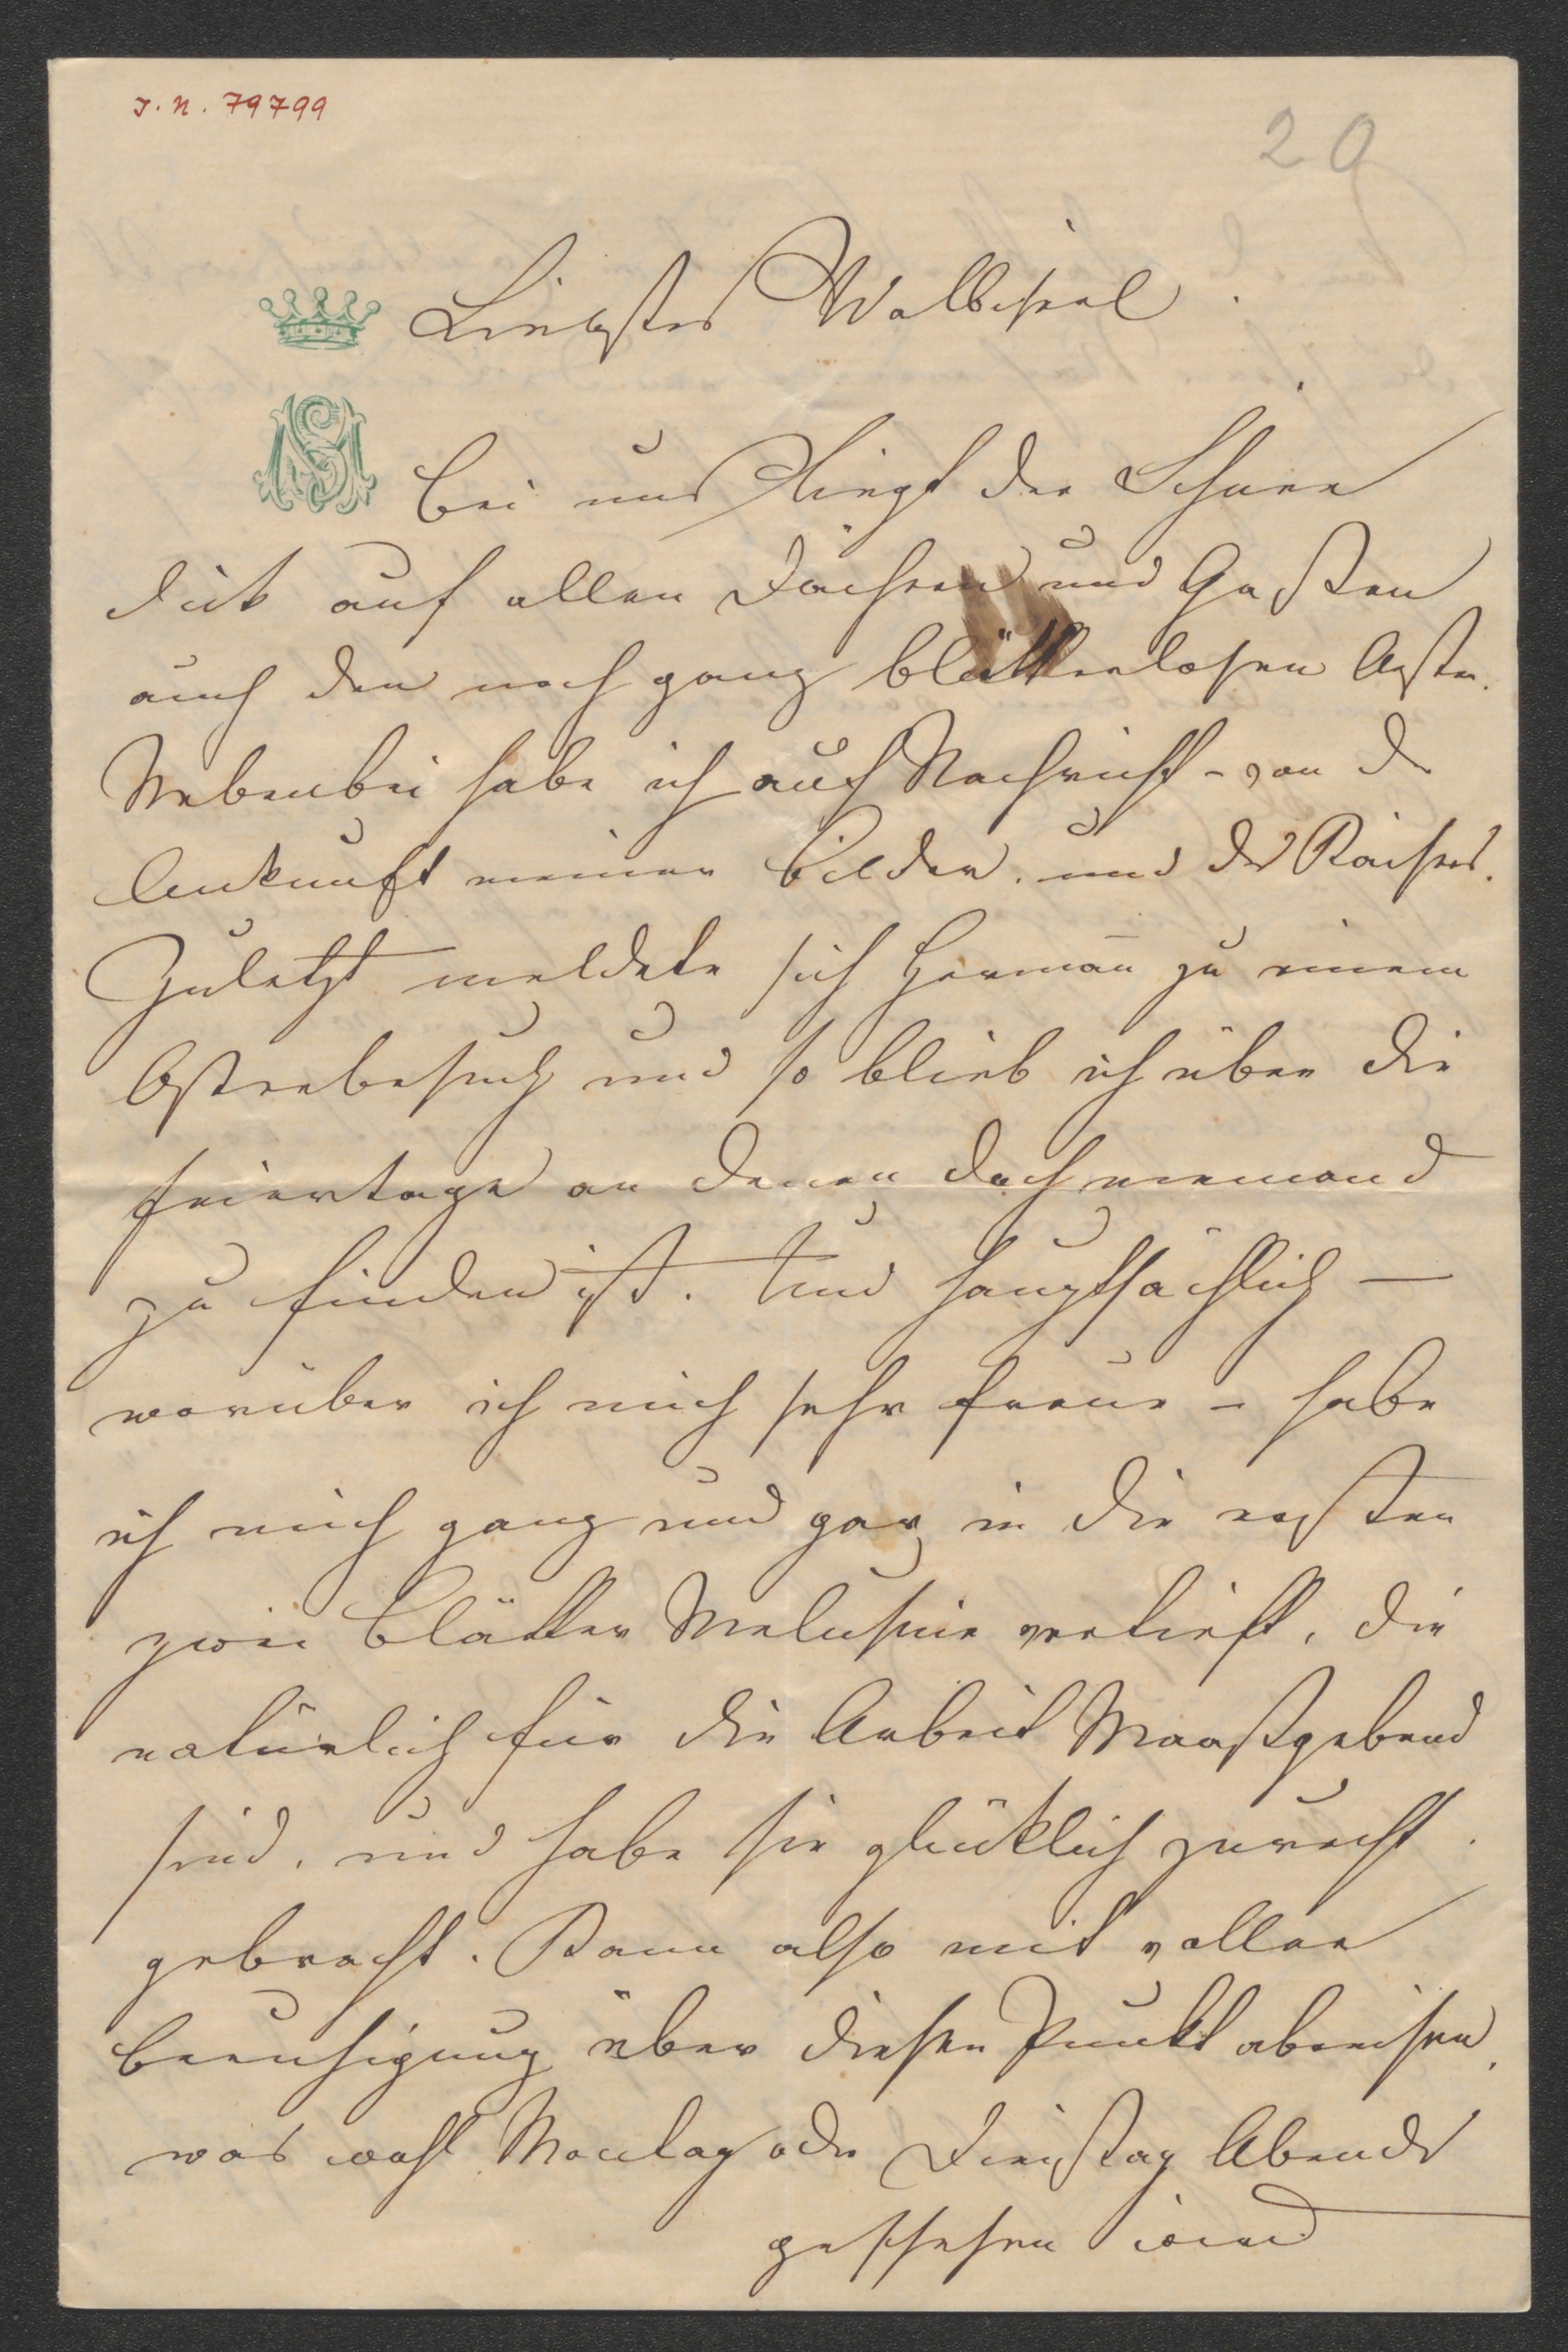 I. N. 79799
20
Liebster Wolbischel.
Bei uns liegt der Schnee
dick auf allen Dächern und Gassen
auch den noch ganz blätterlosen Aesten.
Nebenbei habe ich auch Nachricht - von der
Ankunft meiner Bilder. und des Kaisers.
Zuletzt meldete sich Herman̅ zu einem
Osterbesuch und so blieb ich über die
Feiertage an denen doch niemand
zu finden ist. Und hauptsächlich —
worüber ich mich sehr freue - habe
ich mich ganz und gar in die ersten
zwei Blätter Melusine vertieft, die
natürlich für die Arbeit Maaßgebend
sind, und habe sie glücklich zurecht
gebracht. Kann also mit voller
Beruhigung über diesen Punkt abreisen,
was wohl Montag oder Dienstag Abends
geschehen wird